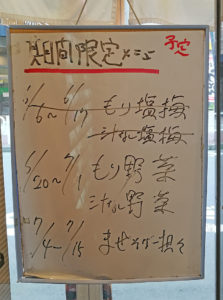 期間限定メニュー 予定
6/6〜6/17 もり塩梅
汁なし塩梅
6/20〜7/1 もり野菜
汁なし野菜
7/4〜7/15 まぜそば-担々